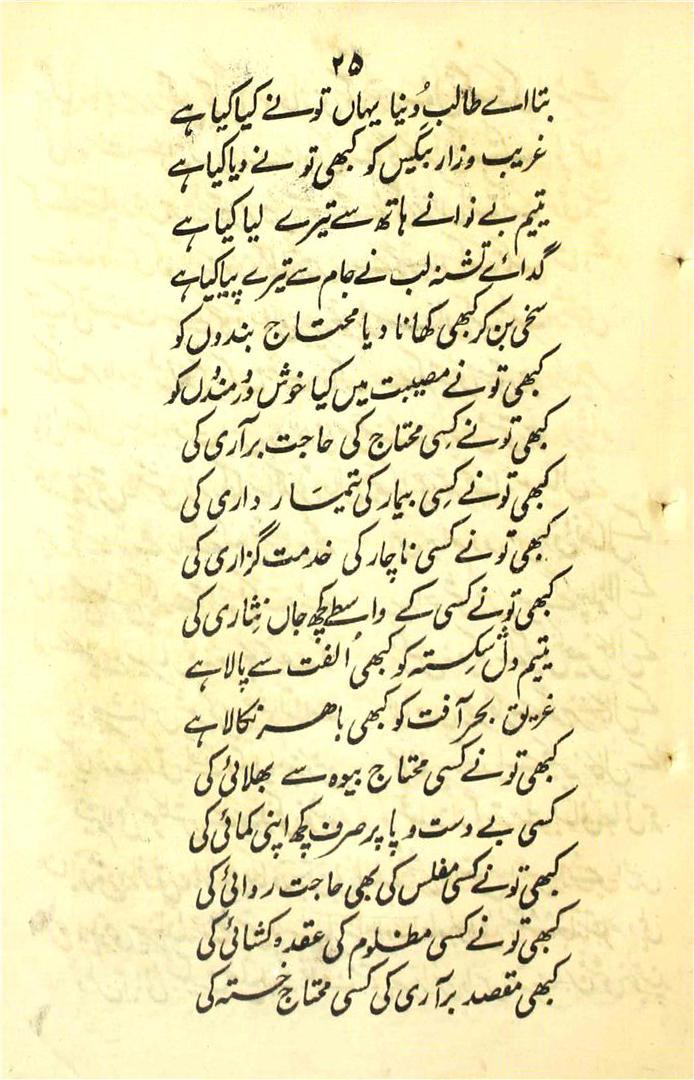 ۲۵
بتا اے طالبِ دُنیا یہاں تو نے کیا کیا ہے
غریب و زار بیکس کو کبھی تو نے دیا کیا ہے
یتیم بے نوا نے ہاتھ سے تیرے لیا کیا ہے
گدائے تشنہ لب نے جام سے تیرے پیا کیا ہے
سخی بن کر کبھی کھانا دیا محتاج بندوں کو
کبھی تو نے مصیبت میں کیا خوش دردمندوں کو
کبھی تو نے کسی محتاج کی حاجت برآری کی
کبھی تو نے کسی بیمار کی تیمار داری کی
کبھی تو نے کسی ناچار کی خدمت گزاری کی
کبھی تو نے کسی کے واسطے کچھ جاں نثاری کی
یتیم دل شکستہ کو کبھی اُلفت سے پالا ہے
غریق بحر آفت کو کبھی باہر نکالا ہے
کبھی تو نے کسی محتاج بیوہ سے بھلائی کی
کسی بے دست و پا پر صرف کچھ اپنی کمائی کی
کبھی تو نے کسی مفلس کی بھی حاجت روائی کی
کبھی تو نے کسی مظلوم کی عقدہ کشائی کی
کبھی مقصد برآری کی کسی محتاج خستہ کی